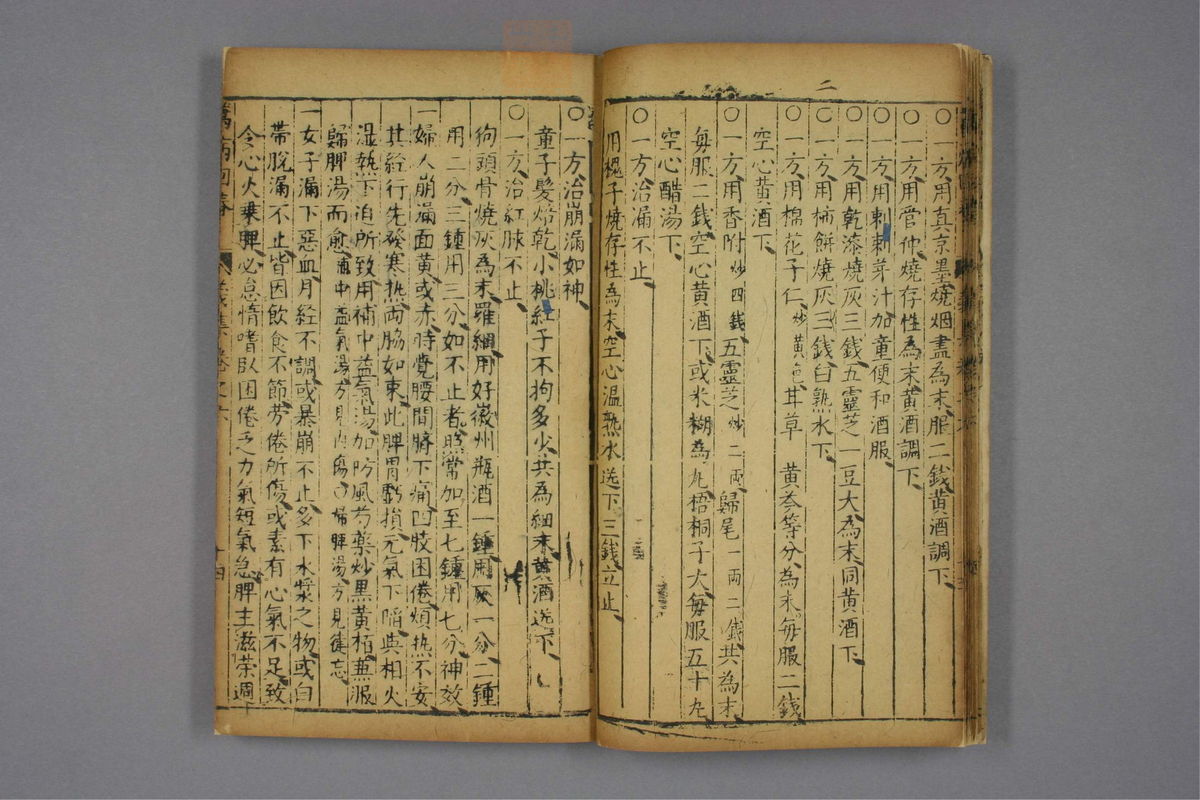 二
○一方用真京墨燒烟盡為末服二錢黃酒調下
○一方用管仲燒存性為末黃酒調下
○一方用刺刺芽汁加童便和酒服
○一方用乾漆燒灰三錢五靈芝一豆大為末同黃酒下
○一方用柿餅燒灰三錢白熟水下
○一方用棉花子仁炒黃色甘草 黃芩等分為末每服二錢
空心黃酒下
○一方用香附炒四錢五靈芝炒二兩歸尾一兩二錢共為末
每服二錢空心黃酒下或米糊為丸梧桐子大每服五十丸
空心醋湯下
○一方治漏不止
用槐子燒存性為末空心温熟水送下三錢立止
○一方治崩漏如神
童子髮焙乾小桃紅子不狗多少共為細末黃酒送下
○一方治紅脉不止
狗頭骨燒灰為末羅細用好徽州瓶酒一鍾用灰一分二鍾
用二分三鍾用三分如不止者照常加至七鍾用七分神效
一婦人崩漏面黃或赤時覺腰間臍下痛四肢困倦煩热不安
其經行先發寒热两脇如束此脾胃虧損元氣下陷與相火
湿热下泊所致用補中益氣湯加防風芍藥炒黑黃栢兼服
歸脾湯而愈補中益氣湯方見内傷歸脾湯方見健忘
一女子漏下惡血月經不調或暴崩不止多下水漿之物或白
帶脫漏不止皆因飲食不節劳倦所傷或素有心氣不足致
令心火乗脾必怠惰嗜臥困倦乏力氣短氣急脾主滋荣週
萬病回春 義集卷之六 十四